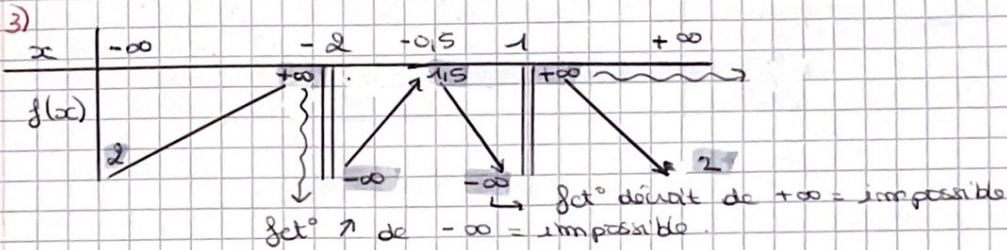 3)
x -∞ -2 -0,5 1 +∞
f(x) +∞ 1,5 +∞
2 -∞ -∞ 2
fct° décroit de +∞ = impossible
fct° ↗ de -∞ = impossible.